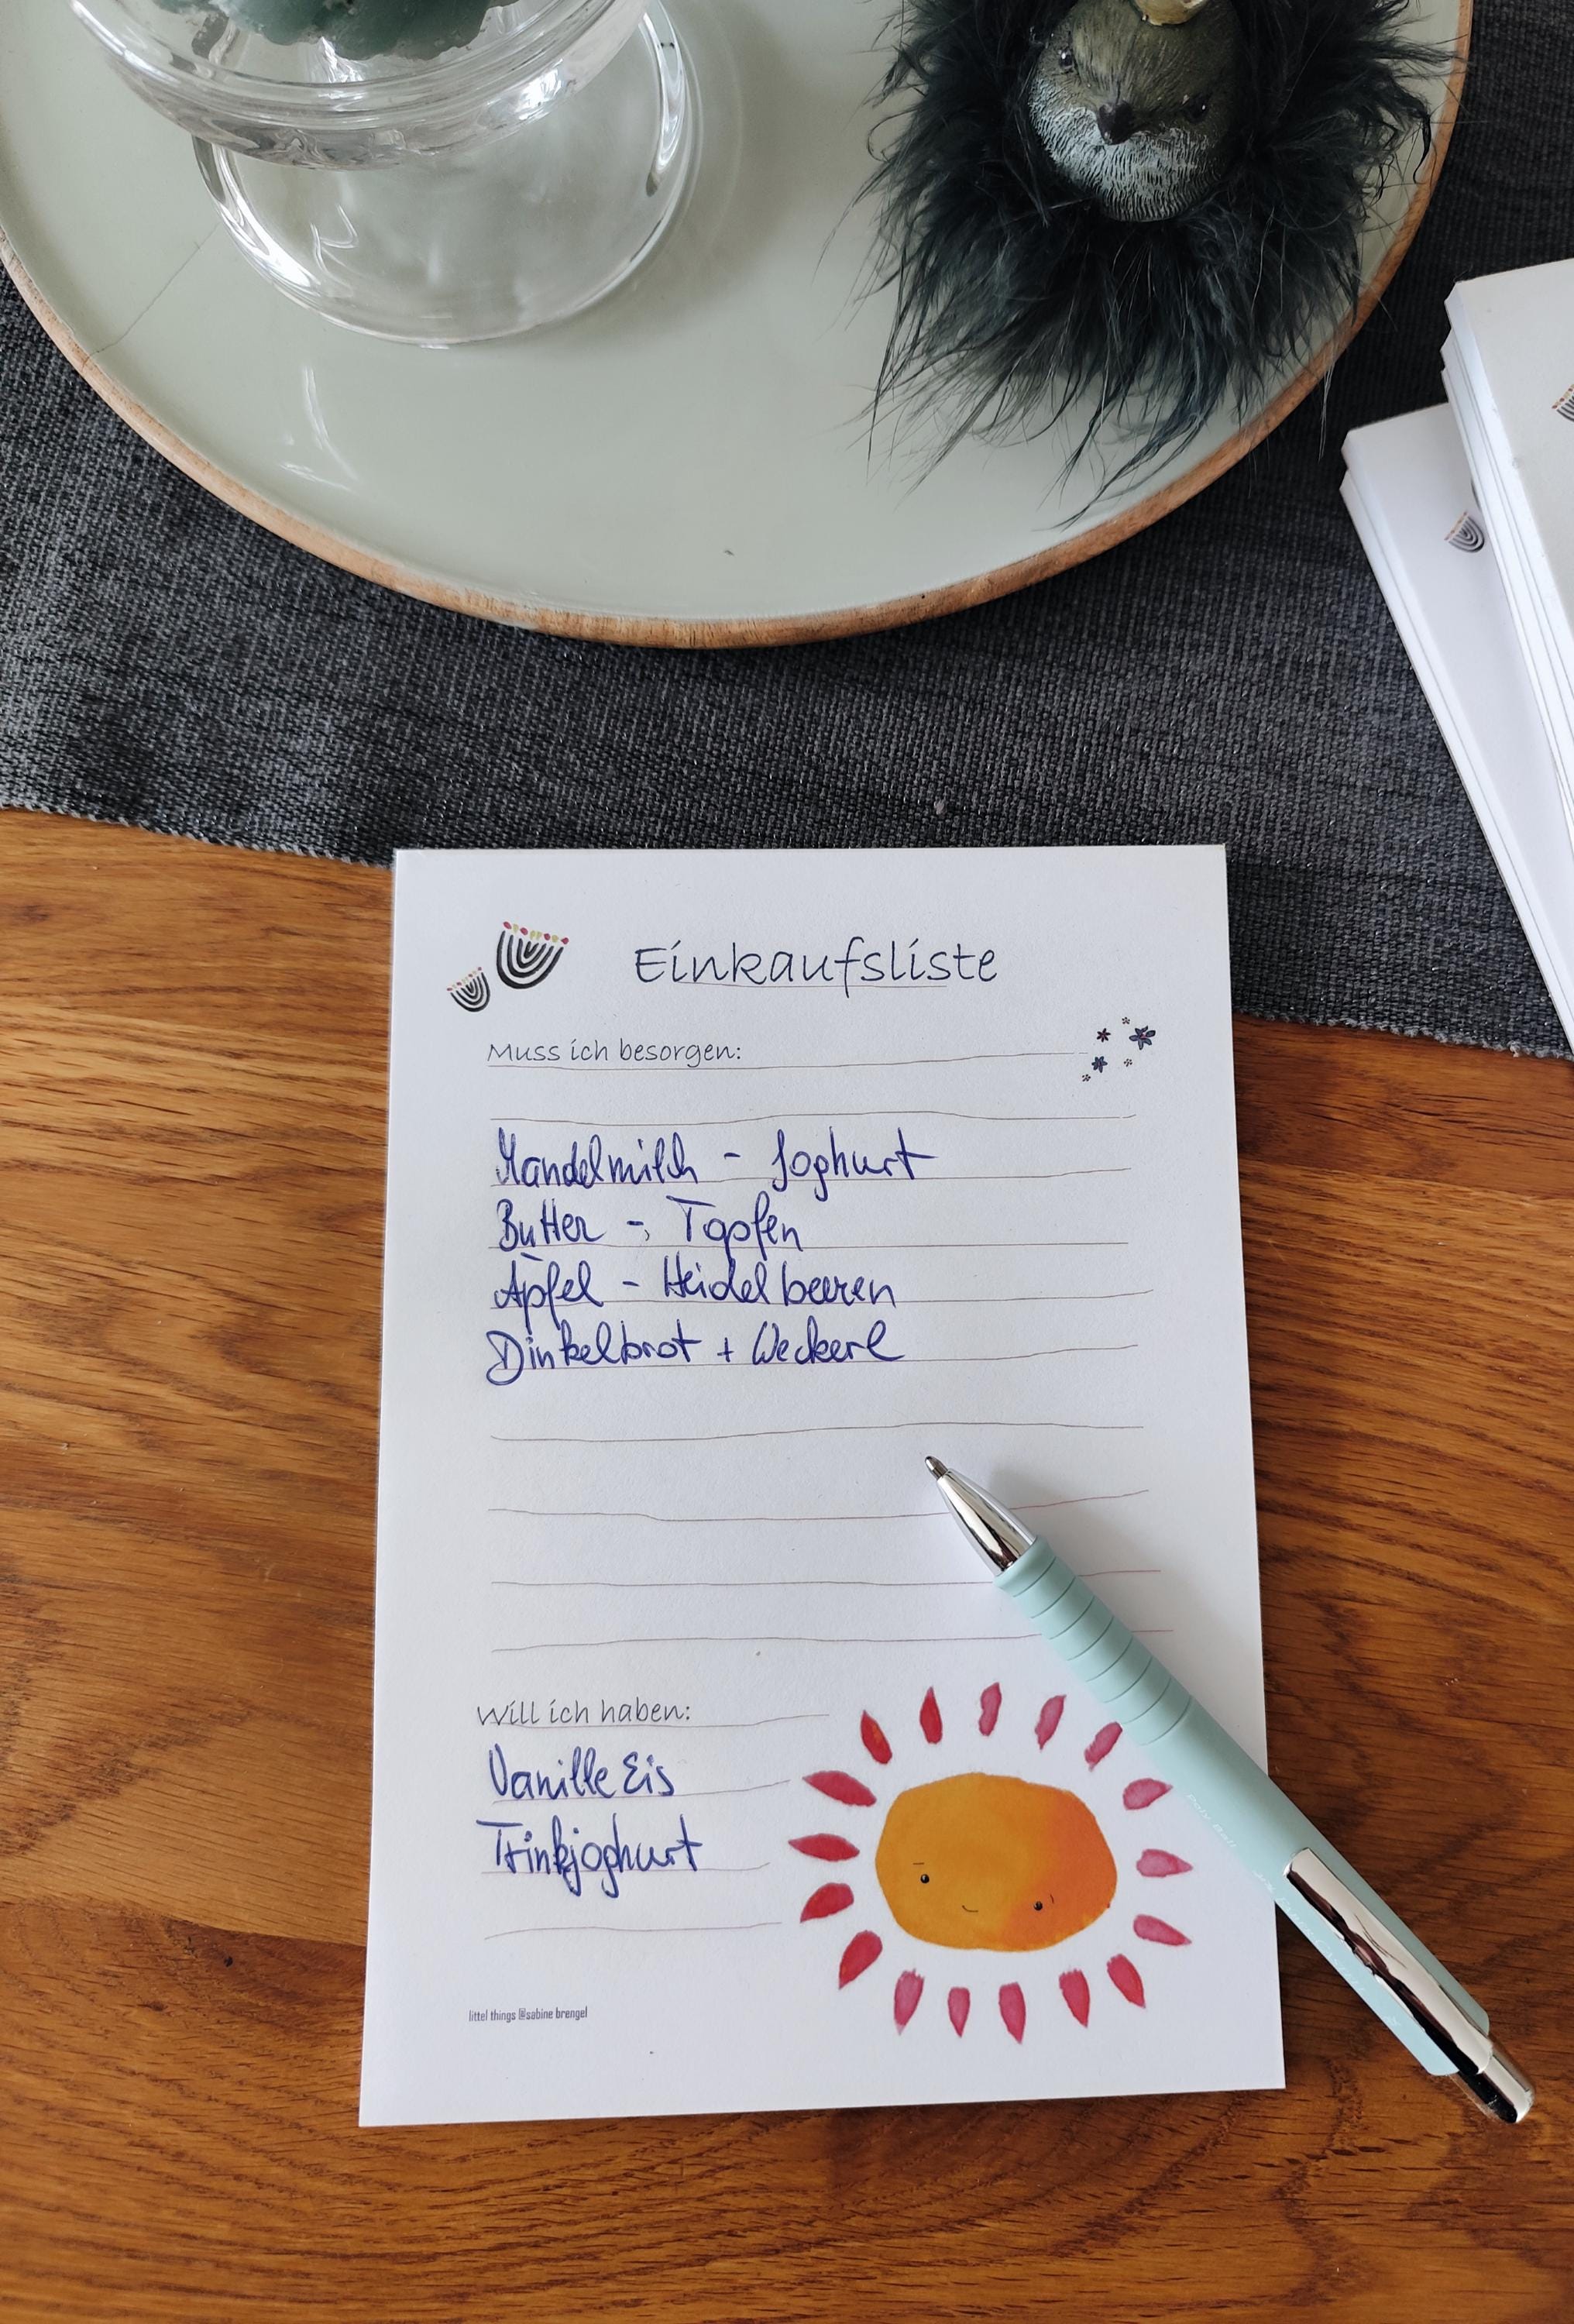 Einkaufsliste
Muss ich besorgen:
Mandelmilch - Joghurt
Butter - Topfen
Äpfel - Heidelbeeren
Dinkelbrot + Weckerl
Will ich haben:
Vanille Eis
Trinkjoghurt
littel things @sabine brengel